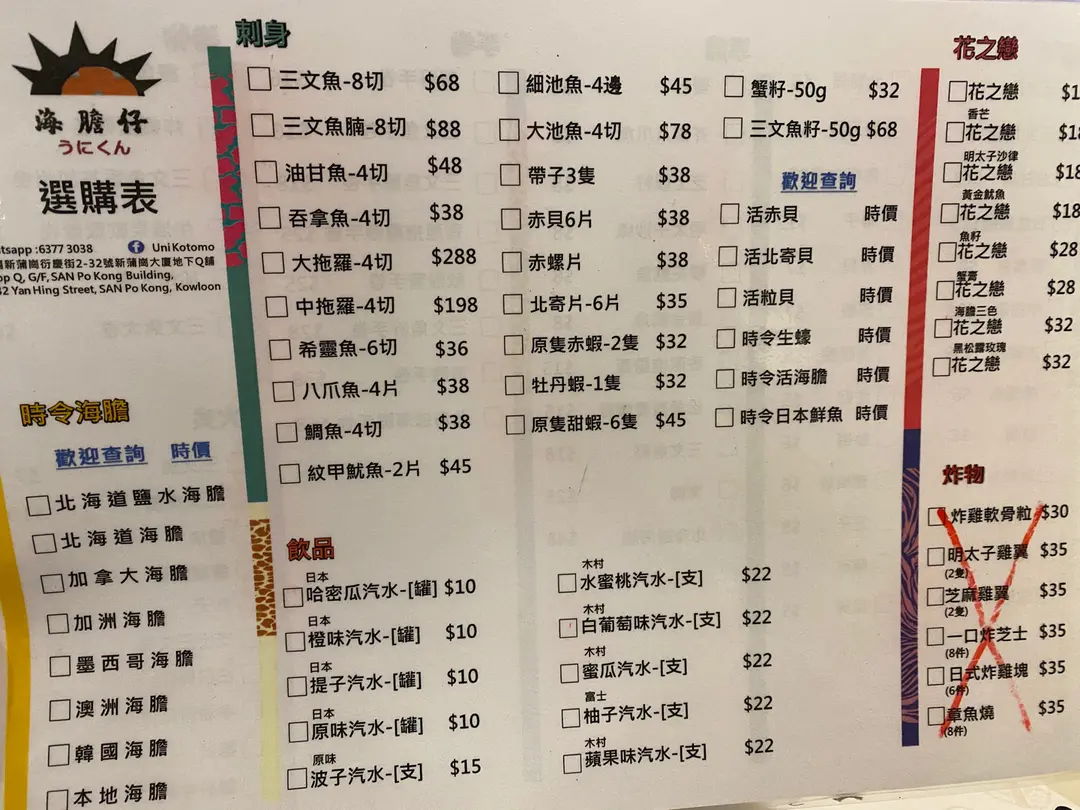 海膽仔
うにくん
選購表
tsapp :6377 3038
UniKotomo
新蒲崗衍慶街2-32號新蒲崗大廈地下Q舖
op Q, G/F, SAN Po Kong Building,
32 Yan Hing Street, SAN Po Kong, Kowloon
時令海膽
歡迎查詢 時價
北海道鹽水海膽
北海道海膽
加拿大海膽
加洲海膽
墨西哥海膽
澳洲海膽
韓國海膽
本地海膽
刺身
三文魚-8切 $68
三文魚腩-8切 $88
油甘魚-4切 $48
吞拿魚-4切 $38
大拖羅-4切 $288
中拖羅-4切 $198
希靈魚-6切 $36
八爪魚-4片 $38
鯛魚-4切 $38
紋甲魷魚-2片 $45
細池魚-4邊 $45
大池魚-4切 $78
帶子3隻 $38
赤貝6片 $38
赤螺片 $38
北寄片-6片 $35
原隻赤蝦-2隻 $32
牡丹蝦-1隻 $32
原隻甜蝦-6隻 $45
蟹籽-50g $32
三文魚籽-50g $68
歡迎查詢
活赤貝 時價
活北寄貝 時價
活粒貝 時價
時令生蠔 時價
時令活海膽 時價
時令日本鮮魚 時價
飲品
日本
哈密瓜汽水-[罐] $10
日本
橙味汽水-[罐] $10
日本
提子汽水-[罐] $10
日本
原味汽水-[罐] $10
原味
波子汽水-[支] $15
木村
水蜜桃汽水-[支] $22
木村
白葡萄味汽水-[支] $22
木村
蜜瓜汽水-[支] $22
富士
柚子汽水-[支] $22
木村
蘋果味汽水-[支] $22
花之戀
花之戀 $1
香芒
花之戀 $18
明太子沙律
花之戀 $18
黃金魷魚
花之戀 $18
魚籽
花之戀 $28
蟹膏
花之戀 $28
海膽三色
花之戀 $32
黑松露玫瑰
花之戀 $32
炸物
炸雞軟骨粒 $30
明太子雞翼 $35
(2隻)
芝麻雞翼 $35
(2隻)
一口炸芝士 $35
(8件)
日式炸雞塊 $35
(6件)
章魚燒 $35
(8件)